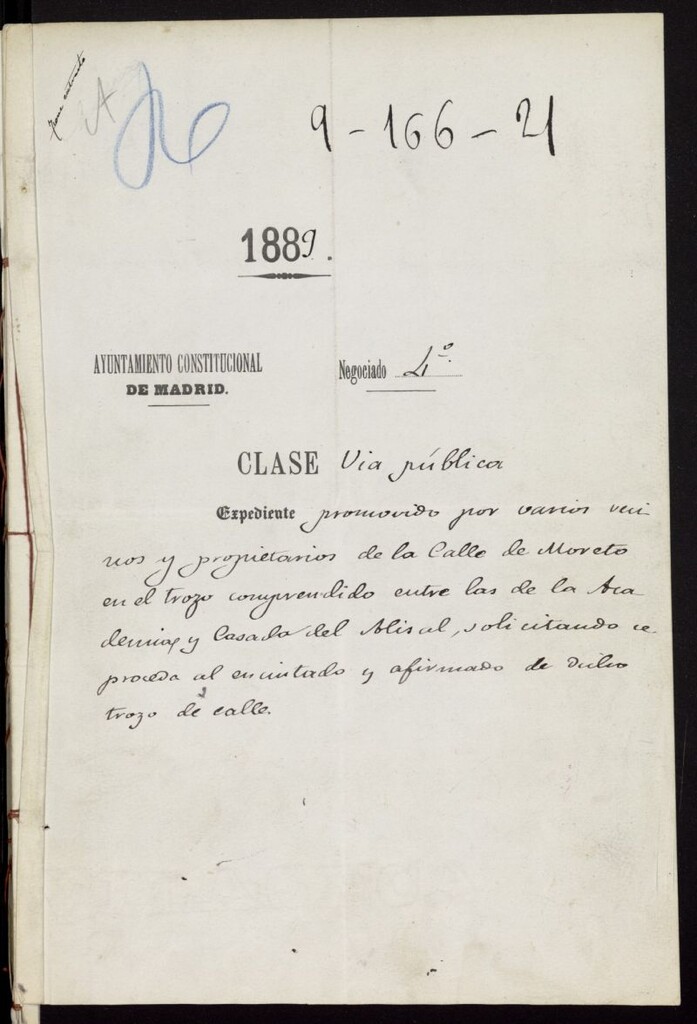 9-166-21
1889.
AYUNTAMIENTO CONSTITUCIONAL
DE MADRID.
Negociado 4º
CLASE Via pública
Expediente promovido por varios veci
nos y propietarios de la Calle de Moreto
en el trozo comprendido entre las de la Aca
demia y Casado del Alisal, solicitando se
proceda al encintado y afirmado de dicho
trozo de calle.